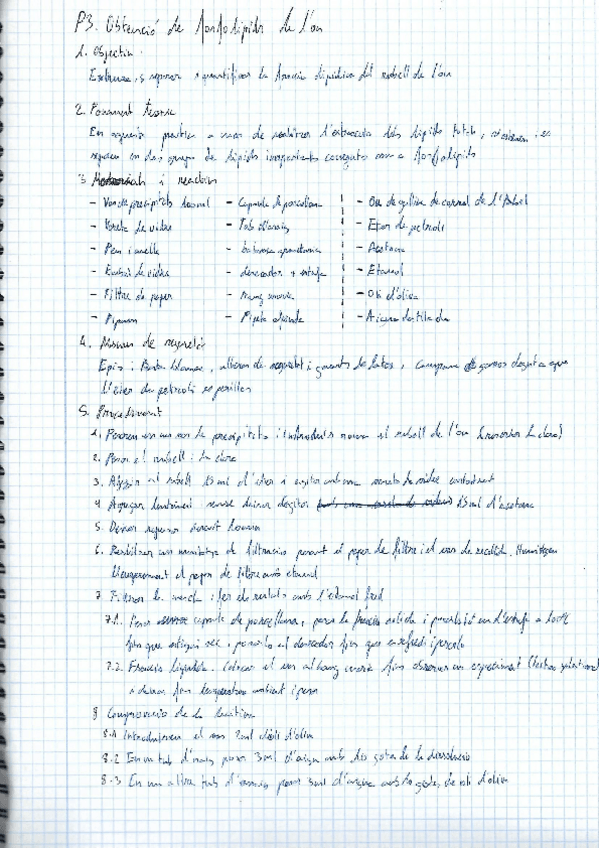 P3. Obtenció de fosfolípids de l'ou
1. Objectiu
Extreure, separar i quantificar la fracció lipídica del rovell de l'ou
2. Fonament teòric
En aquesta pràctica a més de realitzar l'extracció dels lípids totals, es
separen en dos grups de lípids importants coneguts com a fosfolípids
3. Materials i reactius
- Vas de precipitats - Capsula de porcellana - Ou de gallina de corral de l'
- Vareta de vidre - Tub d'assaig - Eter de petroli
- Peu i anella - balança granataria - Acetona
- Embut de vidre - dessecador + estufa - Etanol
- Filtre de paper - Bany maria - Oli d'oliva
- Pipeta - Aigua destilada
4. Mesures de seguretat
Epis: Bata, ulleres de seguretat i guants de latex, campana de gasos degut a que
l'eter de petroli es perillós
5. Procediment
1. Pesarem un vas de precipitats i introduirem el rovell de l'ou (la clara)
2. Pesar el rovell i la clara
3. Afegir al rovell 15 ml d'eter i agitar amb una vareta de vidre
4 Afegir lentament sense deixar d'agitar 15 ml d'acetona
5. Deixar reposar
6. Realitzar un muntatge de filtració posant el paper de filtre i el vas de recollida.
lleugerament el paper de filtre amb etanol
7. Filtrar la mescla i fer els rentats amb l'etanol fred
7.1. Pesar capsula de porcellana, posar la fracció solida i posarla a l'estufa a 100ºC
fins que estigui sec, posarlo al dessecador fins que es refredi i pesarlo
7.2. Fracció liquida. Colocar el vas al bany maria fins observar un
i deixar fins temperatura ambient i pesar
8 Comprovació de la
8.1 Introduirem el vas 2ml d'oli d'oliva
8.2 En un tub d'assaig posar 3ml d'aigua amb dos gotes de la dissolució
8.3 En un altre tub d'assaig posar 3ml d'aigua amb dos gotes de oli d'oliva